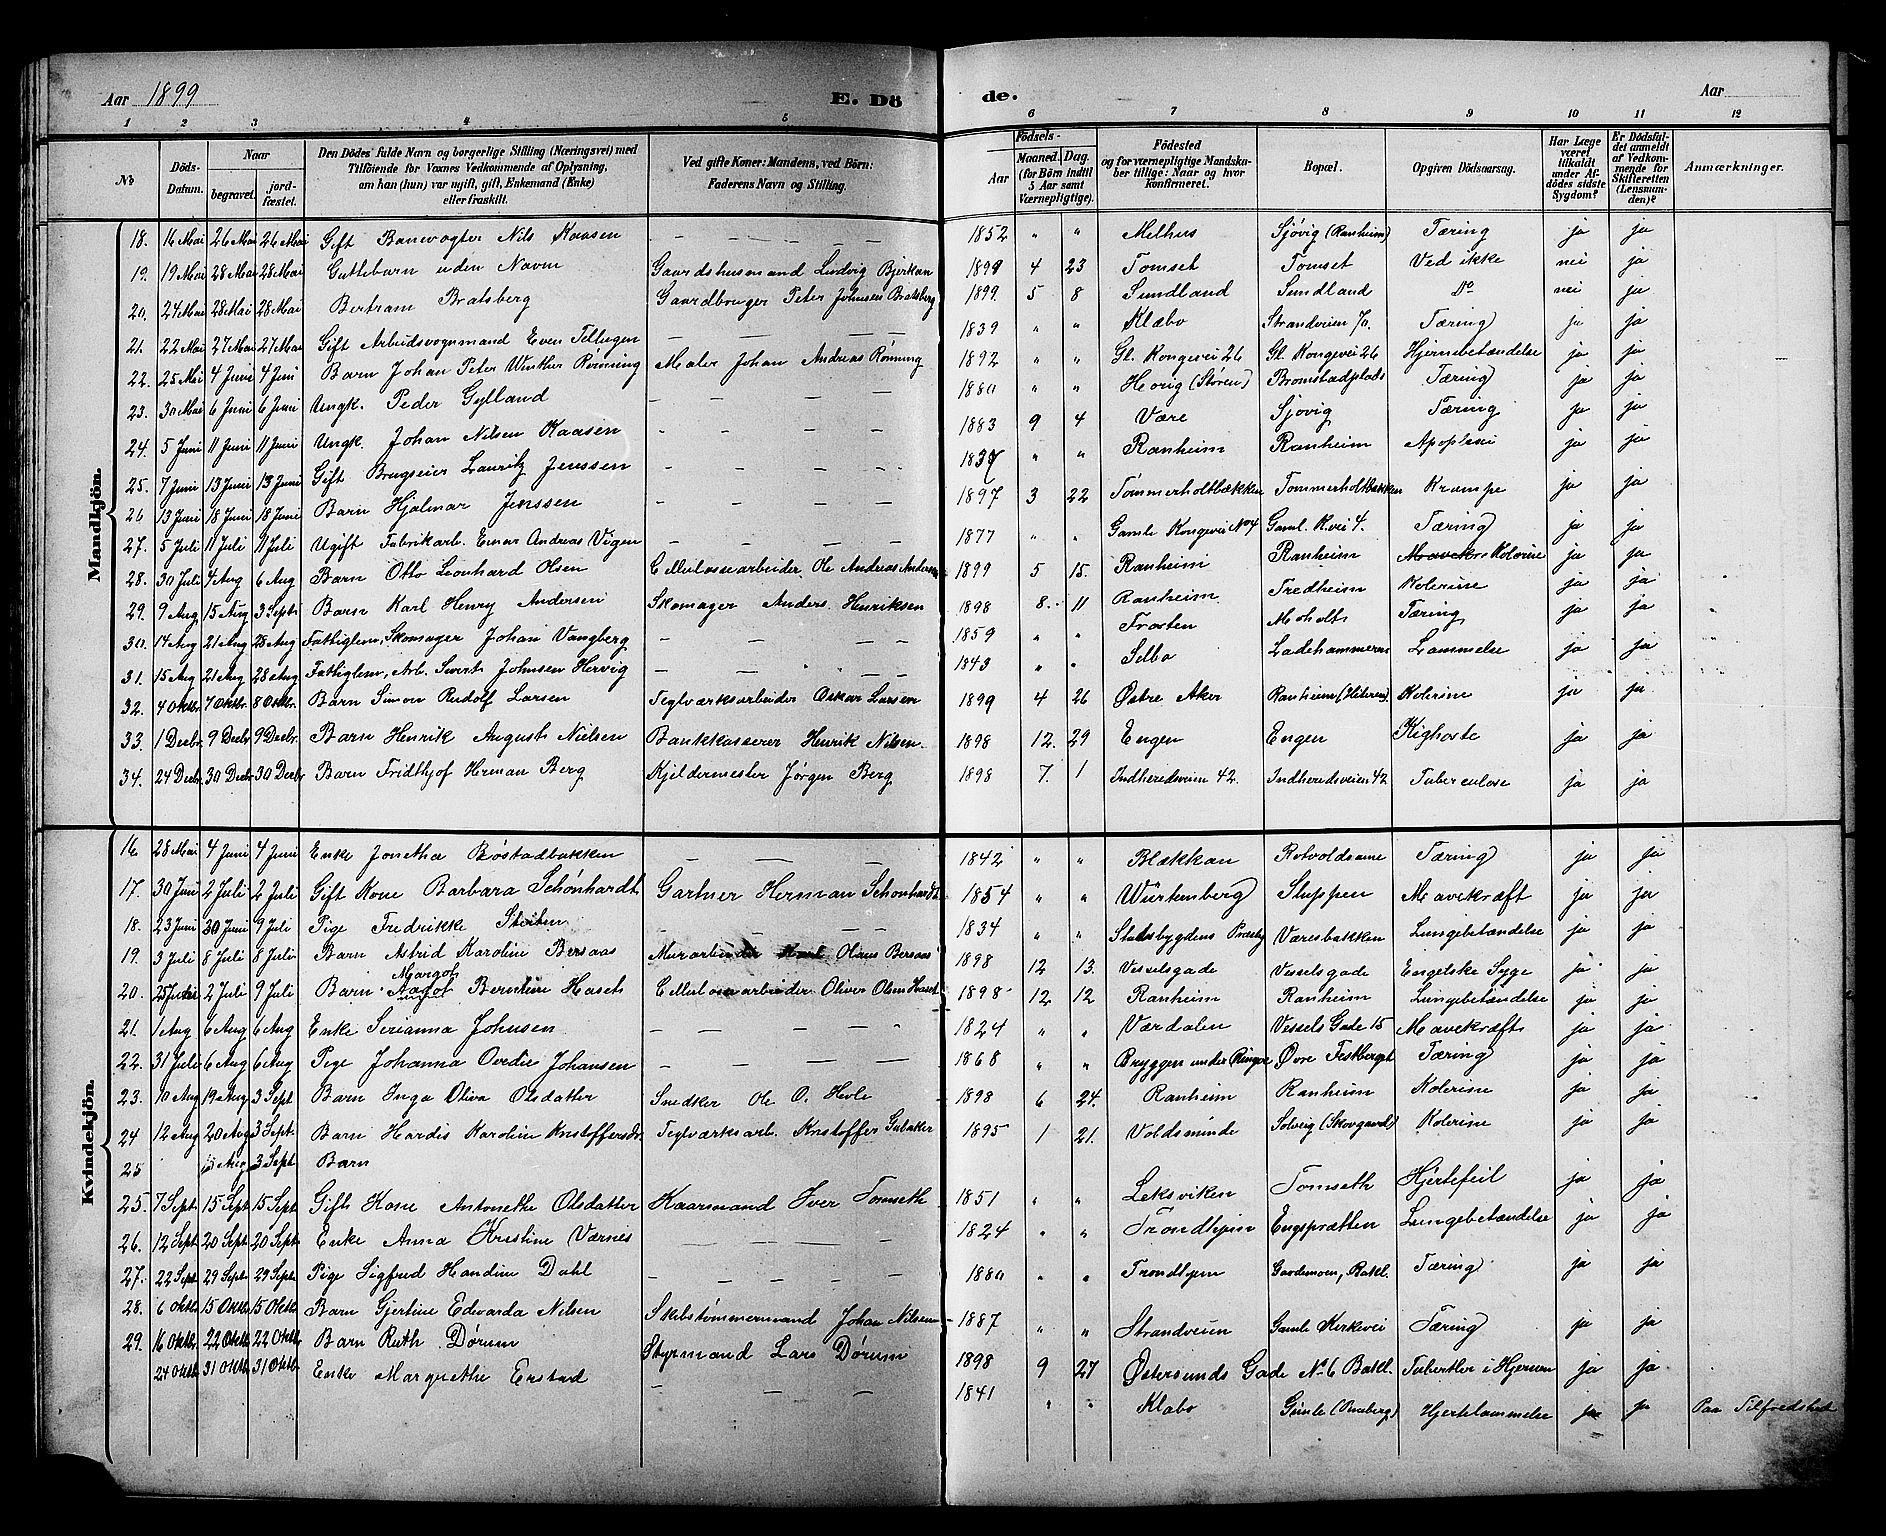 Aar 1899 E. Dö
de. Aar
1 2 3 4 5 6 7 8 9 10 11 12
No | Döds-Datum. | Naar begravet. | jordfæstet. | Den Dödes' fulde Navn og borgerlige Stilling (Næringsvei) med Tilföiende for Voxnes Vedkommende af Oplysning, am han (hun) var ugift, gift, Enkemand (Enke) eller fraskilt. | Ved gifte Koner: Mandens, ved Börn: Faderens Navn og Stilling. | Aar | Födsels- Maaned. Dag. (for Börn indtil 5 Aar samt Værnepligtige). | Födested og for værnepligtige Mandskaber tillige: Naar og hvor konfirmeret. | Bopæl. | Opgiven Dödsaarsag. | Har Læge været tilkaldt under Afdödes sidste Sygdom? | Er Dödsfaldet anmeldt af Vedkommende for Skifteretten (Lensmanden)? | Anmærkninger.
Mandkjön.
18. 16 Mai 26 Mai 26 Mai Gift Banevogter Nils Kaasen — 1852 " " Melhus Sjövig (Ranheim) Tæring ja ja
19. 19 Mai 28 Mai 28 Mai Guttebarn uden Navn Gaardshusmand Ludvig Bjerkan 1899 4 23 Tomset Tomset Ved ikke nei ja
20. 24 Mai 28 Mai 28 Mai Bertram Bratsberg Gaardbruger Peter Johnsen Bratsberg 1899. 5 8 Sundland Sundland Do nei ja
21. 22 Mai 27 Mai 27 Mai Gift Arbeidsvognmand Even Tellugen — 1839 " " Klæbo Strandveien 70. Tæring ja ja
22. 25 Mai 4 Juni 4 Juni Barn Johan Peter Winther Rönning Maler Johan Andreas Rönning 1892 " " Gl. Kongevei 26 Gl. Kongevei 26 Hjernebetændelse ja ja
23. 30 Mai 6 Juni 6 Juni Ungk. Peder Gylland — 1880 " " Horig (Stören) Bromstadplads Tæring ja ja
24. 5 Juni 11 Juni 11 Juni Ungk. Johan Nilsen Kaasen — 1883 9 4 Være Sjövig Tæring ja ja
25. 7 Juni 13 Juni 13 Juni Gift Brugseier Lauritz Jenssen — 1837 " " Ranheim Ranheim Apoplexi ja ja
26 13 Juni 18 Juni 18 Juni Barn Hjalmar Jenssen — 1897 3 22 Tömmerholtbækken Tömmerholtbækken Krampe ja ja
27. 5 Juli 11 Juli 11 Juli Ugift Fabrikarb. Einar Andreas Vigen — 1877 " " Gamle Kongevei No 4 Gaml. K.vei 4. Tæring ja ja
28. 30 Juli 4 Aug 6 Aug Barn Otto Leonhard Olsen Cellulosearbeider Ole Andreas Andersen 1899 5 15. Ranheim Ranheim Kolerine ja ja
29. 9 Aug 15 Aug 3 Sept Barn Karl Henry Andersen Skomager Anders Henriksen 1898 8. 11 Ranheim Fredheim Kolerine ja ja
30. 14 Aug 21 Aug 28 Aug Fattiglem, Skomager Johan Vangberg — 1859 " " Frosten Moholt Tæring ja ja
31. 15 Aug 21 Aug 28 Aug Fattiglem, Arb. Sivert Johnsen Hervig — 1843 " " Selbo Ladehammeren Lammelse ja ja
32. 4 Oktbr. 7 Oktbr. 8 Oktbr. Barn Simon Rudolf Larsen Teglværksarbeider Oskar Larsen 1899 4 26 Østre Aker Ranheim Kolerine ja ja
33. 1 Decbr. 9 Decbr 9 Decbr. Barn Henrik August Nielsen Bankkasserer Henrik Nilsen 1898 12. 29 Engen Engen Kighoste ja ja
34. 24 Decbr. 30 Decbr 30 Decbr Barn Fridthjof Herman Berg Kjeldermester Jörgen Berg 1898 7. 1 Indherredsveien 42. Indherredsveien 42 Tuberculose ja ja
Kvindekjön.
16. 28 Mai 4 Juni 4 Juni Enke Jonetha Böstadbakken — 1842 " " Blækkan Rotvoldsaune Tæring ja ja
17. 30 Juni 2 Juli 2 Juli Gift Kone Barbara Schönhardt Gartner Herman Schönhardt 1854 " " Würtemberg Sluppen Mavekræft ja ja
18. 23 Juni 30 Juni 9 Juli Pige Fredrikke — 1834 " " Stadsbygdens Præstg Væresbakken Lungebetændelse ja ja
19. 3 Juli 8 Juli 8 Juli Barn Astrid Karoline Bersaas Murarbeider Olaus Bersaas 1898 12 13. Vesselsgade Vesselsgade Engelske Syge ja ja
20. 2 Juli 9 Juli Barn Margot Aagot Berntine Haset Cellulosearbeider Oliver Olsen Haset 1898 12 12 Ranheim Ranheim Lungebetændelse ja ja
21. 1 Aug 6 Aug 6 Aug Enke Serianna Johnsen — 1824 " " Værdalen Vessels Gade 15 Mavekræft ja ja
22. 31 Juli 6 Aug 6 Aug Pige Johanna Ovedie Johansen — 1868 " " Bryggen under Ringve Øvre Festberget Tæring ja ja
23. 10 Aug 19 Aug 3 Sept Barn Inga Oliva Olsdatter Snedker Ole O. Hevle 1898 6 24. Ranheim Ranheim Kolerine ja ja
24 12 Aug 20 Aug 3 Sept. Barn Hardis Karoline Kristoffersdr. Teglværksarb. Kristoffer 1895 1 21. Voldsminde Solveig (Skovgaard) Kolerine ja ja
25 Aug 3 Sept Barn
25. 7 Sept 15 Sept 15 Sept Gift Kone Antonette Olsdatter Kaarmand Iver Tomseth 1851 " " Leksviken Tomseth Hjertefeil ja ja
26. 12 Sept 20 Sept 20 Sept Enke Anna Kristine Værnes — 1824 " " Trondhjem Engsprætten Lungebetændelse ja ja
27. 22 Sept 29 Sept 29 Sept Pige Sigfred Handine Dahl — 1880 " " Trondhjem Gardemoen, Bakl. Tæring ja ja
28. 6 Oktbr. 15 Oktbr 15 Oktbr Barn Gjertine Edvarda Nilsen Skibstömmermand Johan Nilsen 1887 " " Strandveien Gamle Kirkevei Tæring ja ja
29. 16 Oktbr. 22 Oktbr 22 Oktbr Barn Ruth Dörum Styrmand Lars Dörum 1898 9 27 Østersunds Gade No 6 Bakl. Tuberkler i Hjernen ja ja
24 Oktbr. 31 Oktbr 31 Oktbr Enke Margrethe Erstad — 1841 " " Klæbo Gimle Hjertelammelse ja ja Paa Tilfredshet